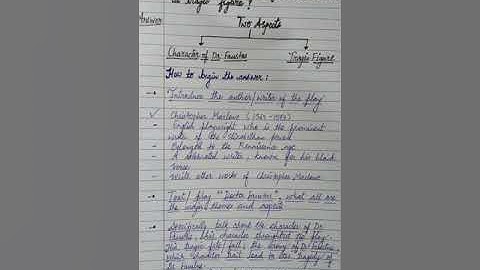 as tragic figure ?
Answer
Two Aspects
Character of Dr Faustus Tragic Figure
How to begin the answer :
Introduce the author/writer of the play
Christopher Marlowe
- English playwright who is the prominent
writer of the Elizabethan period
- Belonged to the Renaissance age
- A celebrated writer, known for his blank
verse
- Write other works of Christopher Marlowe
Text/play "Doctor Faustus", what all are
the major themes and aspects
Specifically talk about the character of Dr
Faustus, his character throughout the play
His tragic fate/fall, the of Dr Faustus,
which character that lead to the tragedy of
Dr Faustus